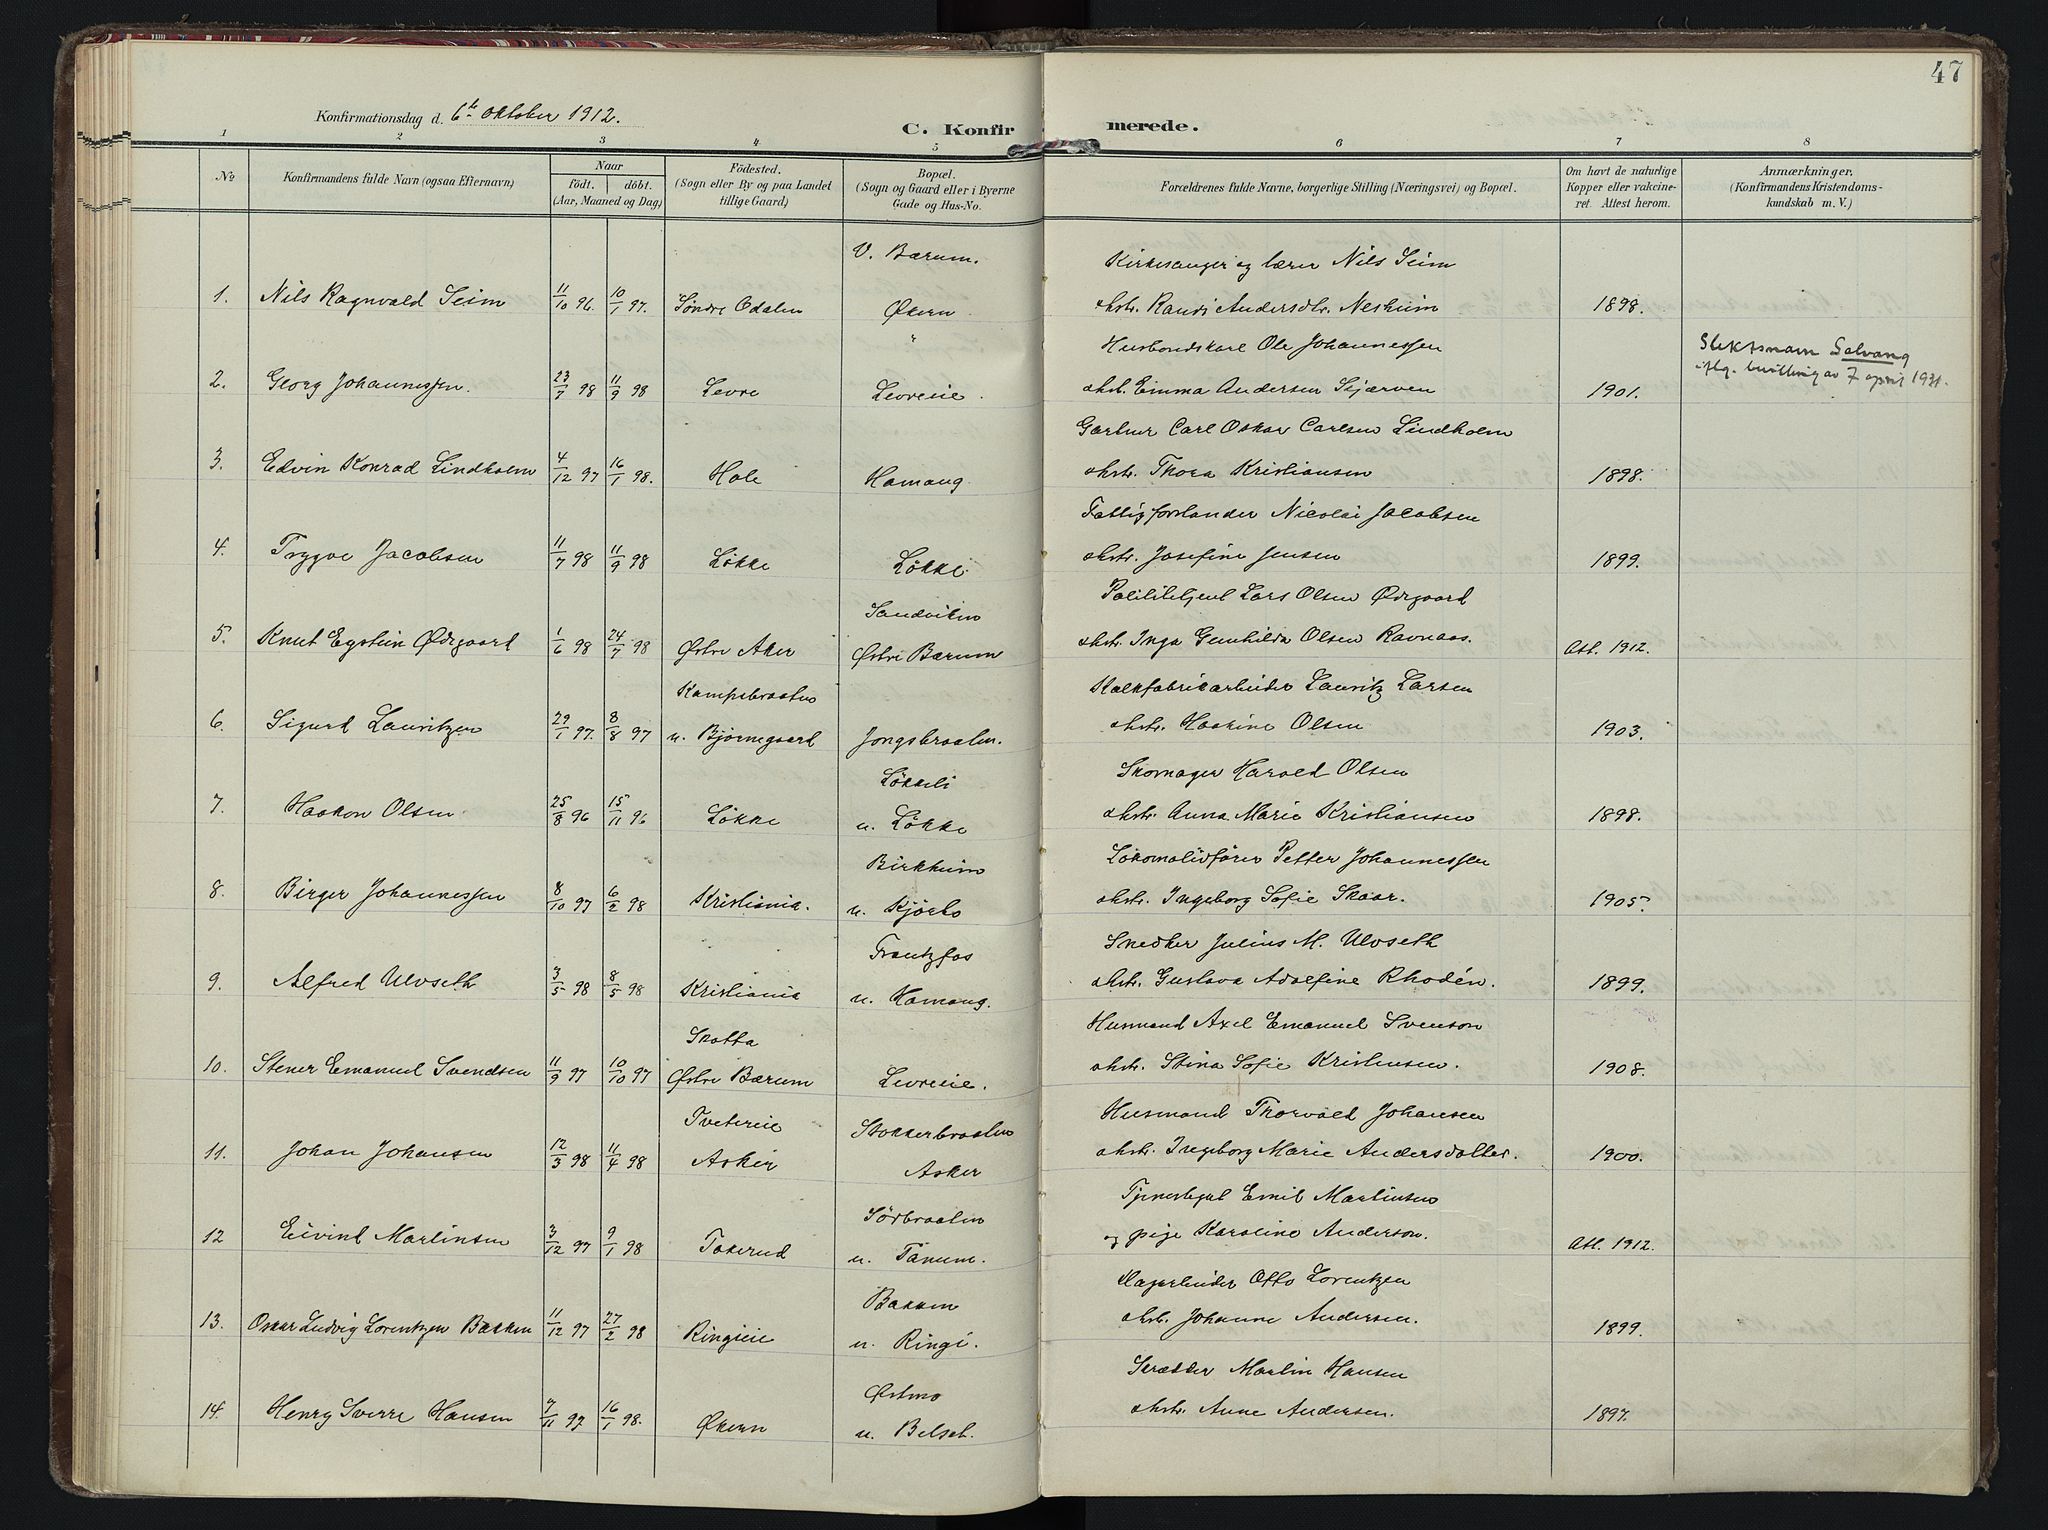 47
Konfirmationsdag d. 6te Oktober 1912.
C. Konfirmerede.
1 2 3 4 5 6 7 8
No
Konfirmandens fulde Navn (ogsaa Efternavn)
Naar
födt. döbt.
(Aar, Maaned og Dag)
Födested.
(Sogn eller By og paa Landet
tillige Gaard)
Bopæl.
(Sogn og Gaard eller i Byerne
Gade og Hus-No.
Forældrenes fulde Navne, borgerlige Stilling (Næringsvei) og Bopæl.
Om havt de naturlige
Kopper eller vakcine-
ret. Attest herom.
Anmærkninger,
(Konfirmandens Kristendoms-
kundskab m. V.)
V. Bærum. Kirkesanger og lærer Nils Seim
1. Nils Ragnvald Seim 11/10 96. 10/1 97. Søndre Odalen Økern ehstr. Randi Andersdtr. Neshiim 1898.
" Husbondskarl Ole Johannessen
2. Georg Johannessen. 23/7 98 11/9 98 Levre Levreeie. ehstr. Emma Andersen Skjærven 1901. Slektsnavn Solvang
iflg. bevilling av 7 april 1931.
Gartner Carl Oskar Carlsen Lindholm
3. Edvin Konrad Lindholm 4/12 97 16/1 98. Hole Hamang ehstr. Thora Kristiansen 1898.
Fattigforstander Nicolai Jacobsen
4. Trygve Jacobsen 11/7 98 11/9 98 Løkke Løkke. ehstr. Josefine Jensen 1899.
Sandviken Politibetjent Lars Olsen Ødegaard
5. Knut Eystein Ødegaard 1/6 98 24/7 98 Østre Aker Østre Bærum ehstr. Inga Gunhilda Olsen Ravnaas. Att. 1912.
Kampebraaten Kalkfabrikarbeider Lauritz Larsen
6. Sigurd Lauritzen 29/1 97. 8/8 97 u. Bjørnegaard Jongsbraaten. ehstr. Haakine Olsen 1903.
Løkkeli Skomager Harald Olsen
7. Haakon Olsen. 25/8 96 15/11 96 Løkke u. Løkke ehstr. Anna Marie Kristiansen 1898.
Birkheim Lokomotivfører Petter Johannessen
8. Birger Johannessen 8/10 97 6/2 98 Kristiania. u. Kjørbo ehstr. Ingeborg Sofie Skaar. 1905.
Frantzfos Snedker Julius M. Ulvseth
9. Alfred Ulvseth 3/5 98 8/5 98 Kristiania u. Hamang. ehstr. Gustava Adolfine Rhodén. 1899.
Skotta Husmand Axel Emanuel Svenson
10. Stener Emanuel Svendsen 11/9 97 10/10 97 Østre Bærum Levreeie. ehstr. Stina Sofie Kristensen. 1908.
Tvetereie Stokkerbraaten Husmand Thorvald Johansen
11. Johan Johansen 12/3 98 11/4 98 Asker Asker ehstr. Ingeborg Marie Andersdatter. 1900.
Sørbraaten Tjenestegut Emil Martinsen
12 Eivind Martinsen 3/12 97 9/1 98 Tokerud u. Tanum. og pige Karoline Anderson. Att. 1912.
Bakken Hagearbeider Otto Lorentzen
13. Oskar Ludvig Lorentzen Bakken 11/12 97 27/2 98 Ringieie u. Ringi. ehstr. Johanne Andersen. 1899.
Østmo Skrædder Martin Hansen
14. Henry Sverre Hansen 7/11 97 16/1 98. Økern u. Belset. ehstr. Anne Andersen. 1897.